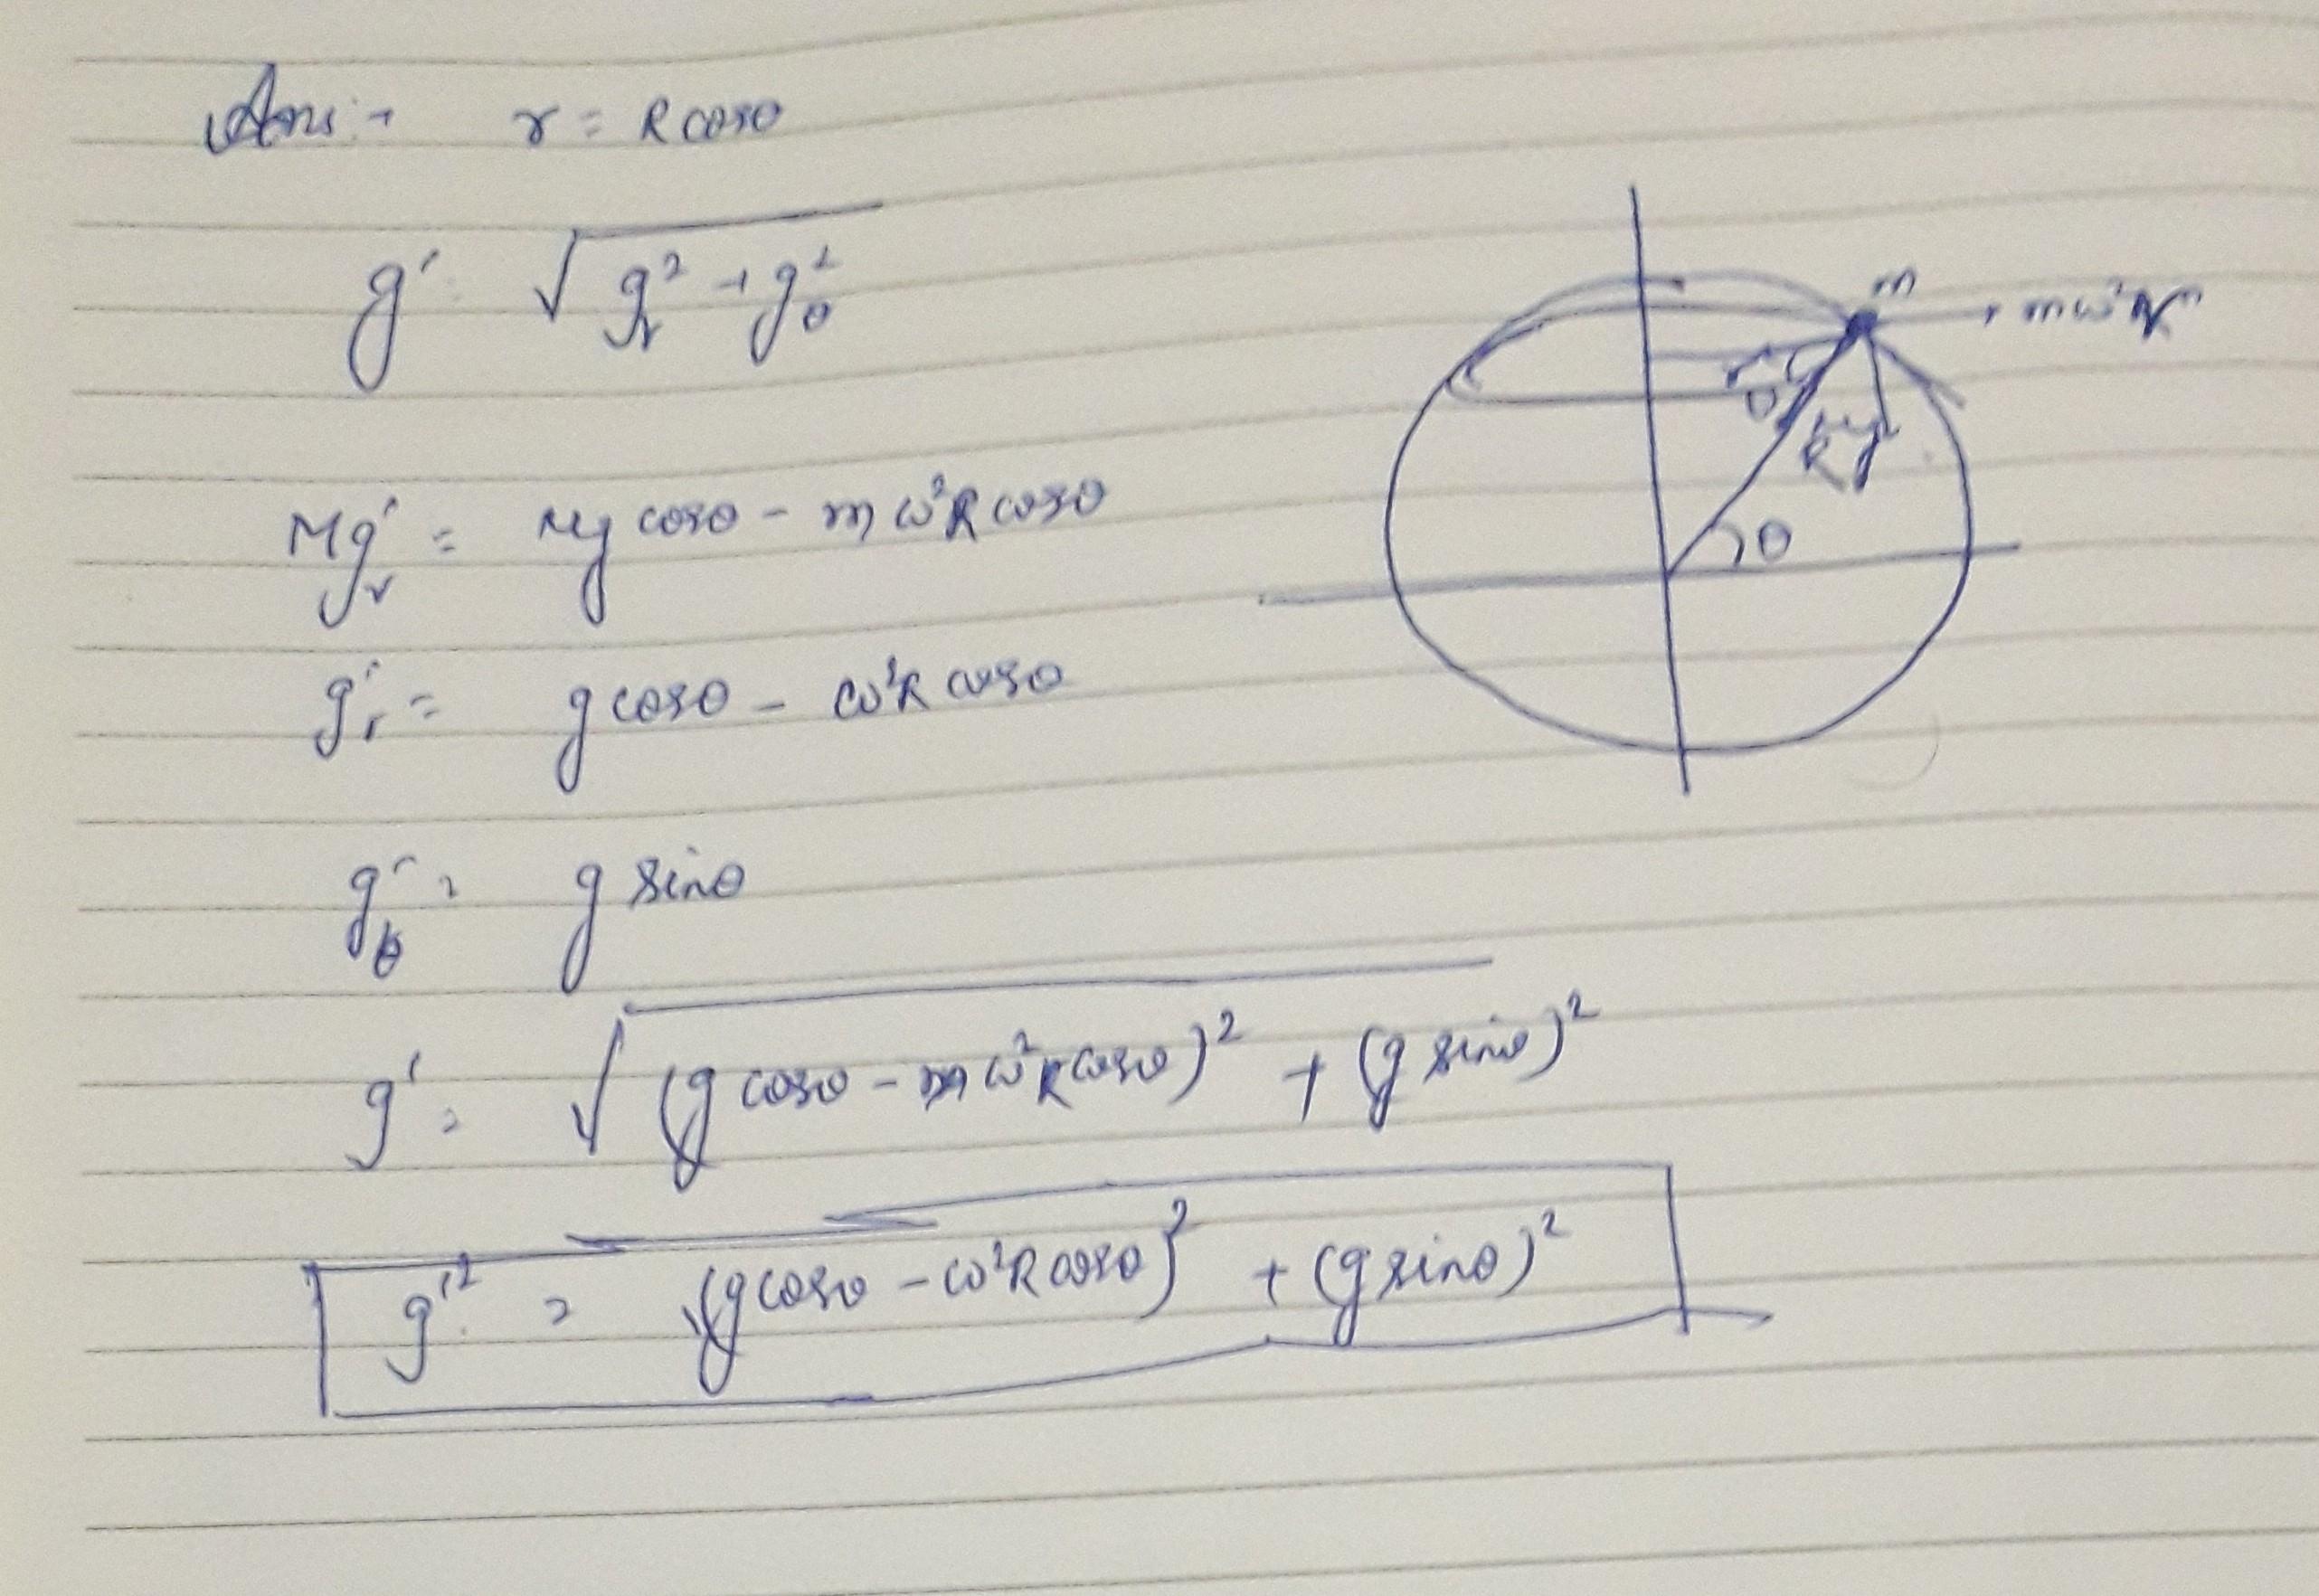 Ans:- r = R cosθ
g' = √(g_r² + g_θ²)
m
mω²r
r
θ
θ
Mg'_r = Mg cosθ - mω²R cosθ
g'_r = g cosθ - ω²R cosθ
g'_θ = g sinθ
g' = √((g cosθ - mω²R cosθ)² + (g sinθ)²)
g'² = (g cosθ - ω²R cosθ)² + (g sinθ)²